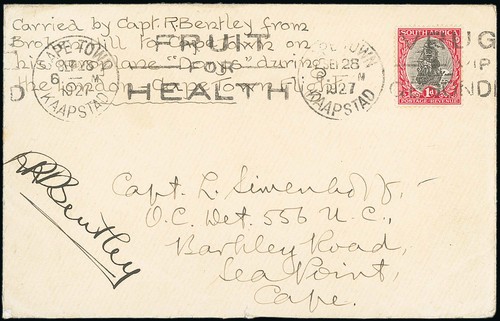 Carried by Capt. R Bentley from
Broken Hill to Cape Town on
his aeroplane "Dorys" during
the London Cape Town flight.
CAPE TOWN
28
6 — M
1927
KAAPSTAD
FRUIT
FOR
HEALTH
TOWN
28
M
1927
KAAPSTAD
SOUTH AFRICA
1d
POSTAGE REVENUE
UG
VIP
NDI
D
RRBentley
Capt. L. Simenhoff,
O.C. Det. 556 U.C.,
Barkley Road,
Sea Point,
Cape.